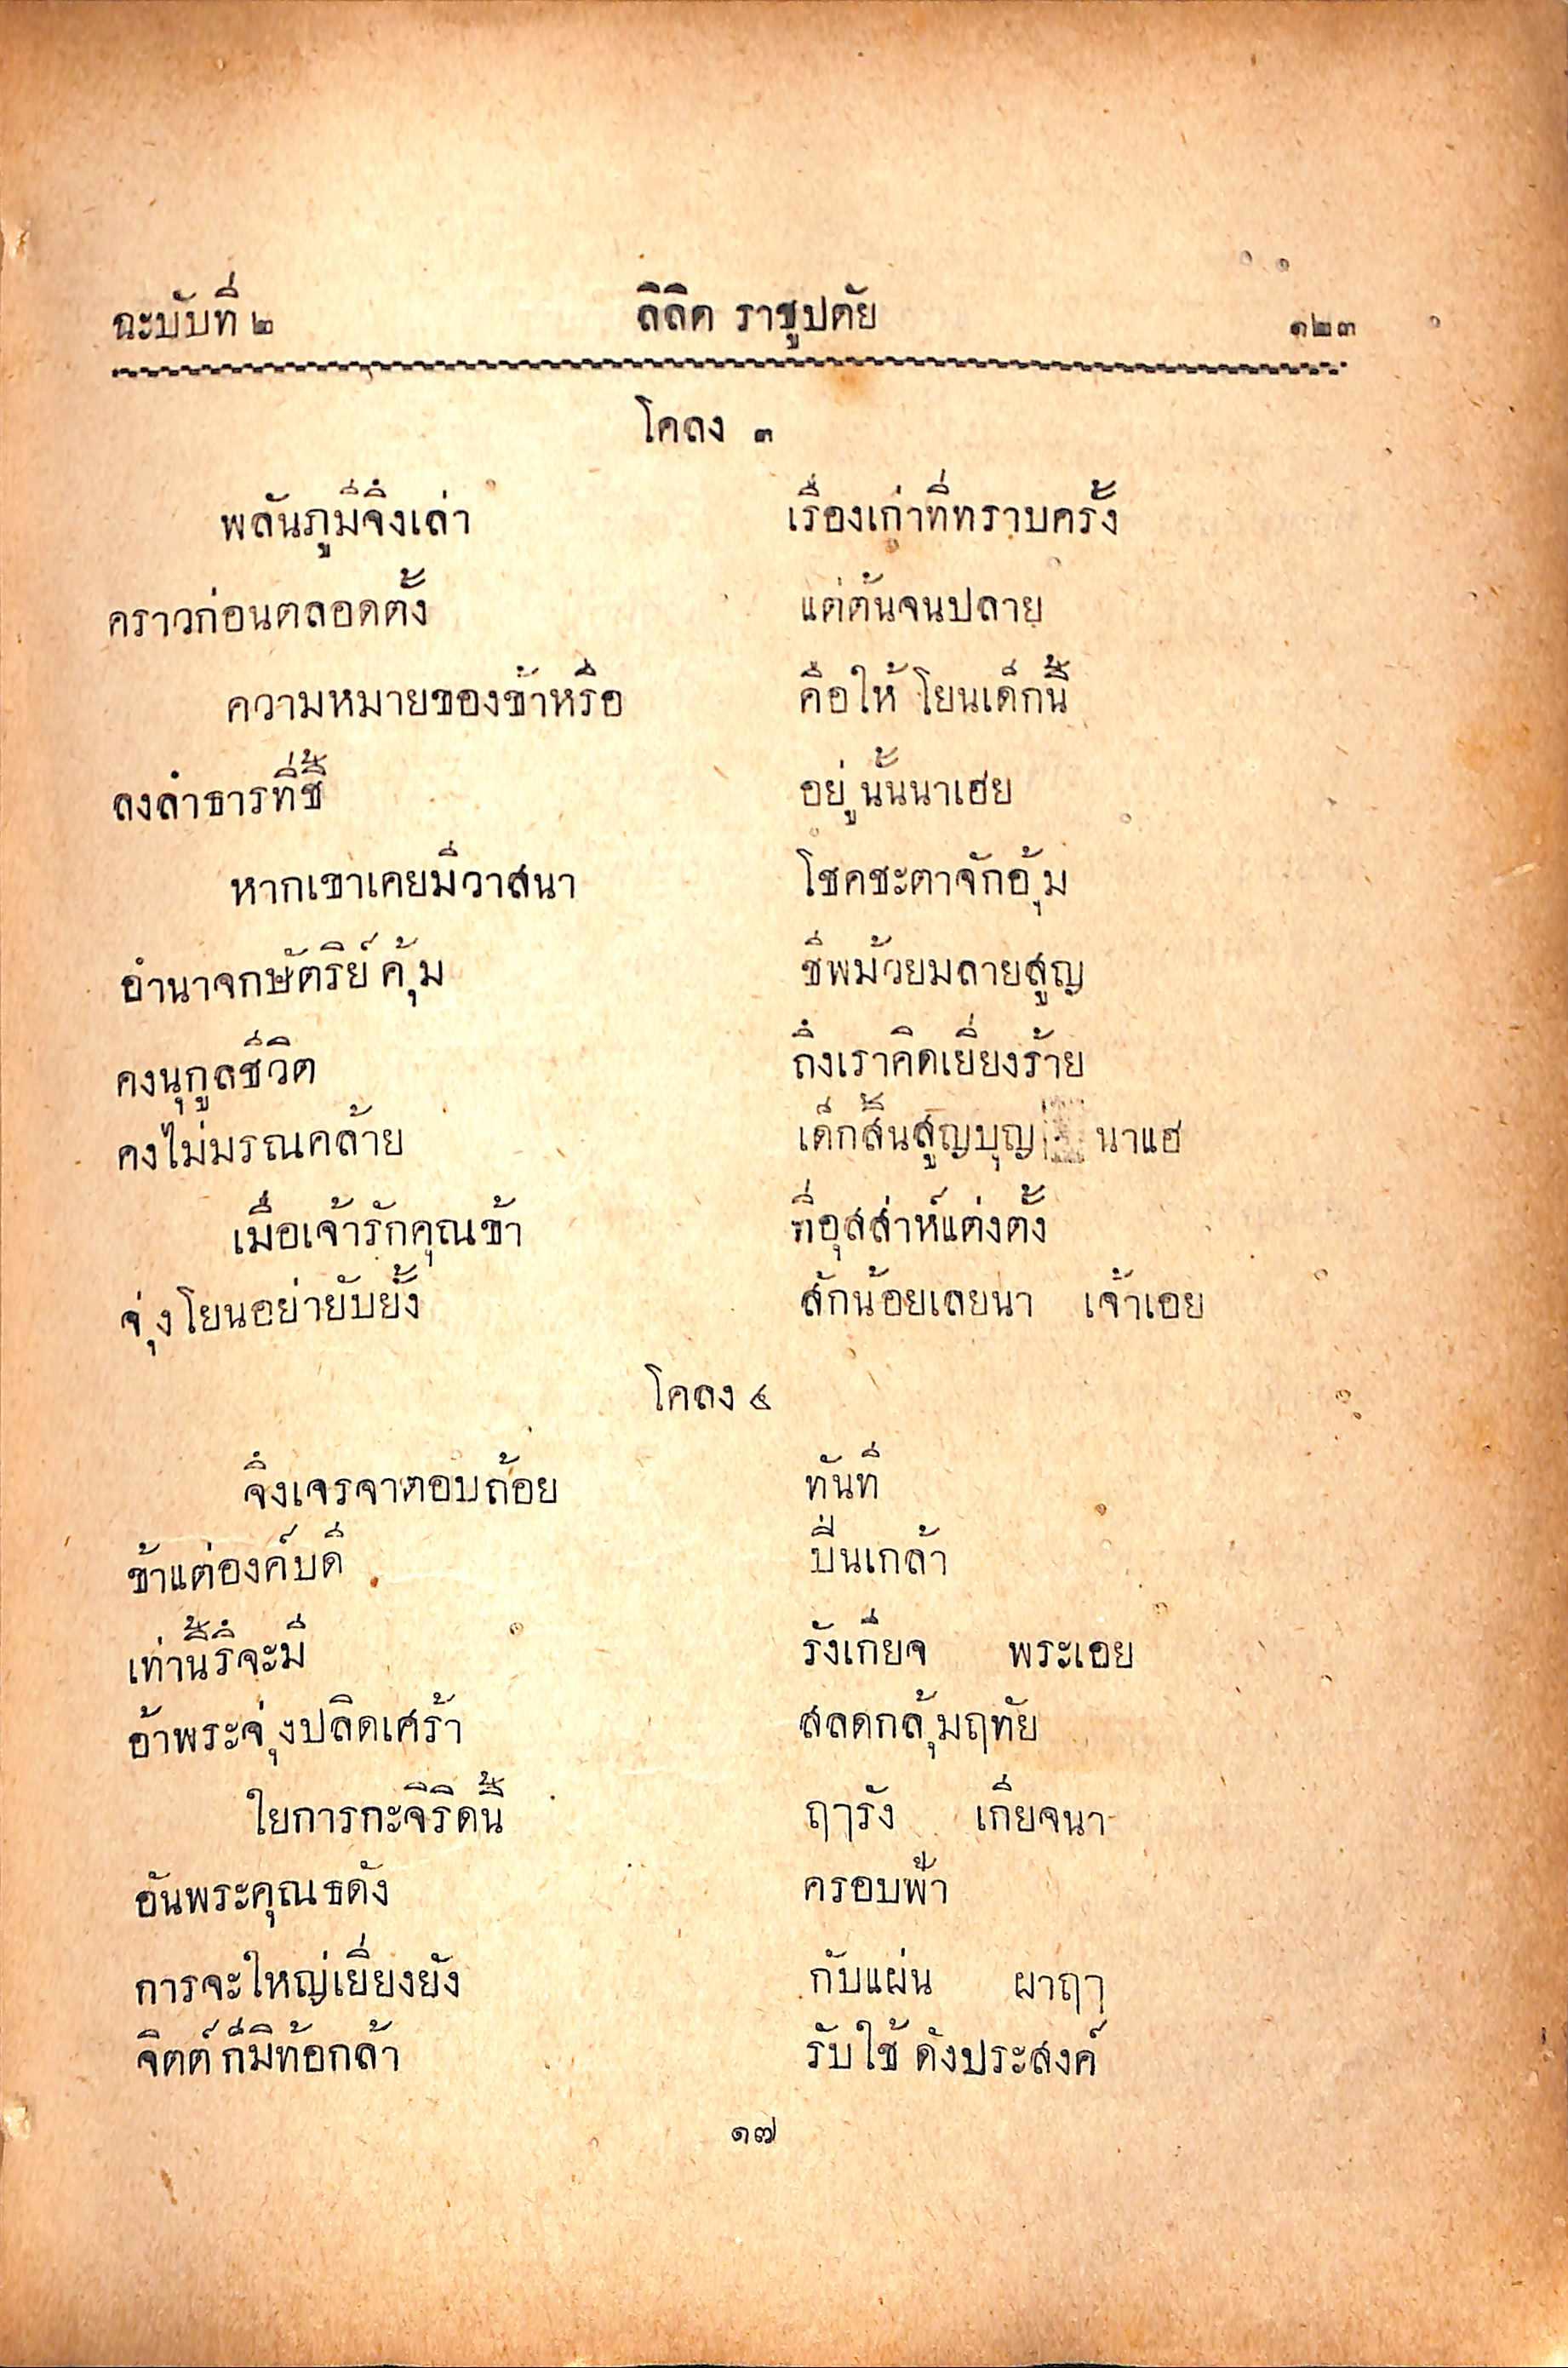 ฉะบับที่ ๒ ลิลิต ราชูปตัย ๑๒๓
โคลง ๓
พลันภูมีจึ่งเล่า เรื่องเก่าที่ทราบครั้ง
คราวก่อนตลอดตั้ง แต่ต้นจนปลาย
ความหมายของข้าหรือ คือให้ โยนเด็กนี้
ลงลำธารที่ชี้ อยู่นั้นนาเฮย
หากเขาเคยมีวาสนา โชคชะตาจักอุ้ม
อำนาจกษัตริย์ คุ้ม ชีพม้วยมลายสูญ
คงนุกูลชีวิต ถึงเราคิดเยี่ยงร้าย
คงไม่มรณคล้าย เด็กสิ้นสูญบุญ นาแฮ
เมื่อเจ้ารักคุณข้า ที่อุสส่าห์แต่งตั้ง
จุ่งโยนอย่ายับยั้ง สักน้อยเลยนา เจ้าเอย
โคลง ๔
จึ่งเจรจาตอบถ้อย ทันที
ข้าแต่องค์บดี ปิ่นเกล้า
เท่านี้ริจะมี รังเกียจ พระเอย
อ้าพระจุ่งปลิดเศร้า สลดกลุ้มฤทัย
ใยการกะจิริดนี้ ฤๅรัง เกียจนา
อันพระคุณธดัง ครอบฟ้า
การจะใหญ่เยี่ยงยัง กับแผ่น ผาฤๅ
จิตต์ก็มิท้อกล้า รับใช้ ดังประสงค์
๑๗